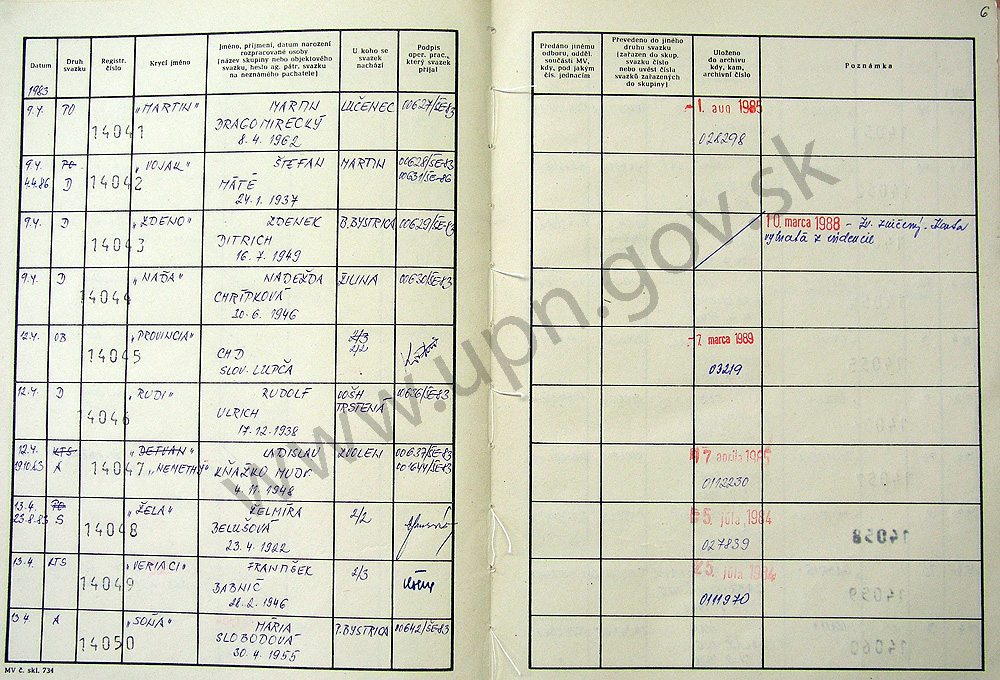 6
Datum
Druh svazku
Registr. číslo
Krycí jméno
Jméno, příjmení, datum narození
rozpracované osoby
(název skupiny nebo objektového
svazku, heslo ag. pátr. svazku
na neznámého pachatele)
U koho se
svazek
nachází
Podpis
oper. prac.,
který svazek
přijal
Předáno jinému
odboru, odděl.
součásti MV,
kdy, pod jakým
čís. jednacím
Převedeno do jiného
druhu svazku
(zařazen do skup.
svazku číslo
nebo uvést čísla
svazků zařazených
do skupiny)
Uloženo
do archivu
kdy, kam,
archivní číslo
Poznámka
1983
9.4. TO 14041 "MARTIN" MARTIN LUČENEC 00627/ŠE-83
DRAGOMIRECKÝ
8.4.1962
1. aug 1985
028298
9.4. D 14042 "VOJAK" ŠTEFAN MARTIN 00628/ŠE-83
4.4.86 MÁTÉ 00631/ŠE-86
24.1.1937
9.4. D 14043 "ZDENO" ZDENEK B.BYSTRICA 00629/ŠE-83
DITRICH
16.7.1949
10. marca 1988 - Zv. zničený. Karta
vyňatá z evidencie
9.4. D 14044 "NAĎA" NADEŽDA ŽILINA 00630/ŠE-83
CHRÍPKOVÁ
30.6.1946
12.4. OB 14045 "PROVINCIA" 2/3
CHD 2/2
SLOV. ĽUPČA
7. marca 1989
03219
12.4. D 14046 "RUDI" RUDOLF OOŠH 00636/ŠE-83
ULRICH TRSTENÁ
17.12.1938
12.4. KTS 14047 "DETVAN" LADISLAV ZVOLEN 00637/ŠE-83
A "NEMETHY" KŇAŽKO MUDr.
4.11.1948
0112230
13.4. 14048 "ŽELA" ŽELMÍRA 2/2
23.8.83 S BELUŠOVÁ
23.4.1922
5. júla 1984
027839
13.4. KTS 14049 "VERIACI" FRANTIŠEK 2/3
BABNIČ
28.2.1946
25. júla 1984
0111970
13.4 A 14050 "SOŇA" MÁRIA P.BYSTRICA 00642/ŠE-83
SLOBODOVÁ
30.4.1955
MV č. skl. 734
www.upn.gov.sk